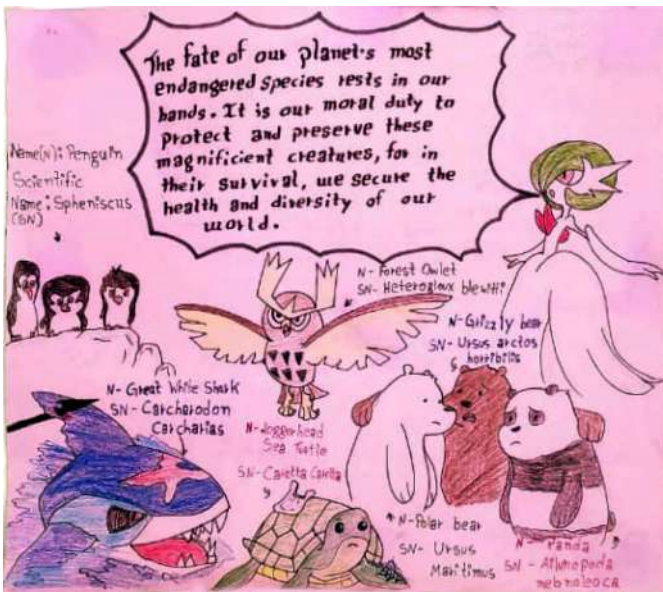 The fate of our planet's most
endangered species rests in our
hands. It is our moral duty to
protect and preserve these
magnificient creatures, for in
their survival, we secure the
health and diversity of our
world.
Name(N): Penguin
Scientific
Name: Spheniscus
(SN)
N- Forest Owlet
SN- Heteroglaux blewitti
N- Grizzly bear
SN- Ursus arctos
horribilis
N- Great White Shark
SN- Carcharodon
Carcharias
N- Loggerhead
Sea Turtle
SN- Caretta Caretta
N- Polar bear
SN- Ursus
Maritimus
N- Panda
SN- Ailuropoda